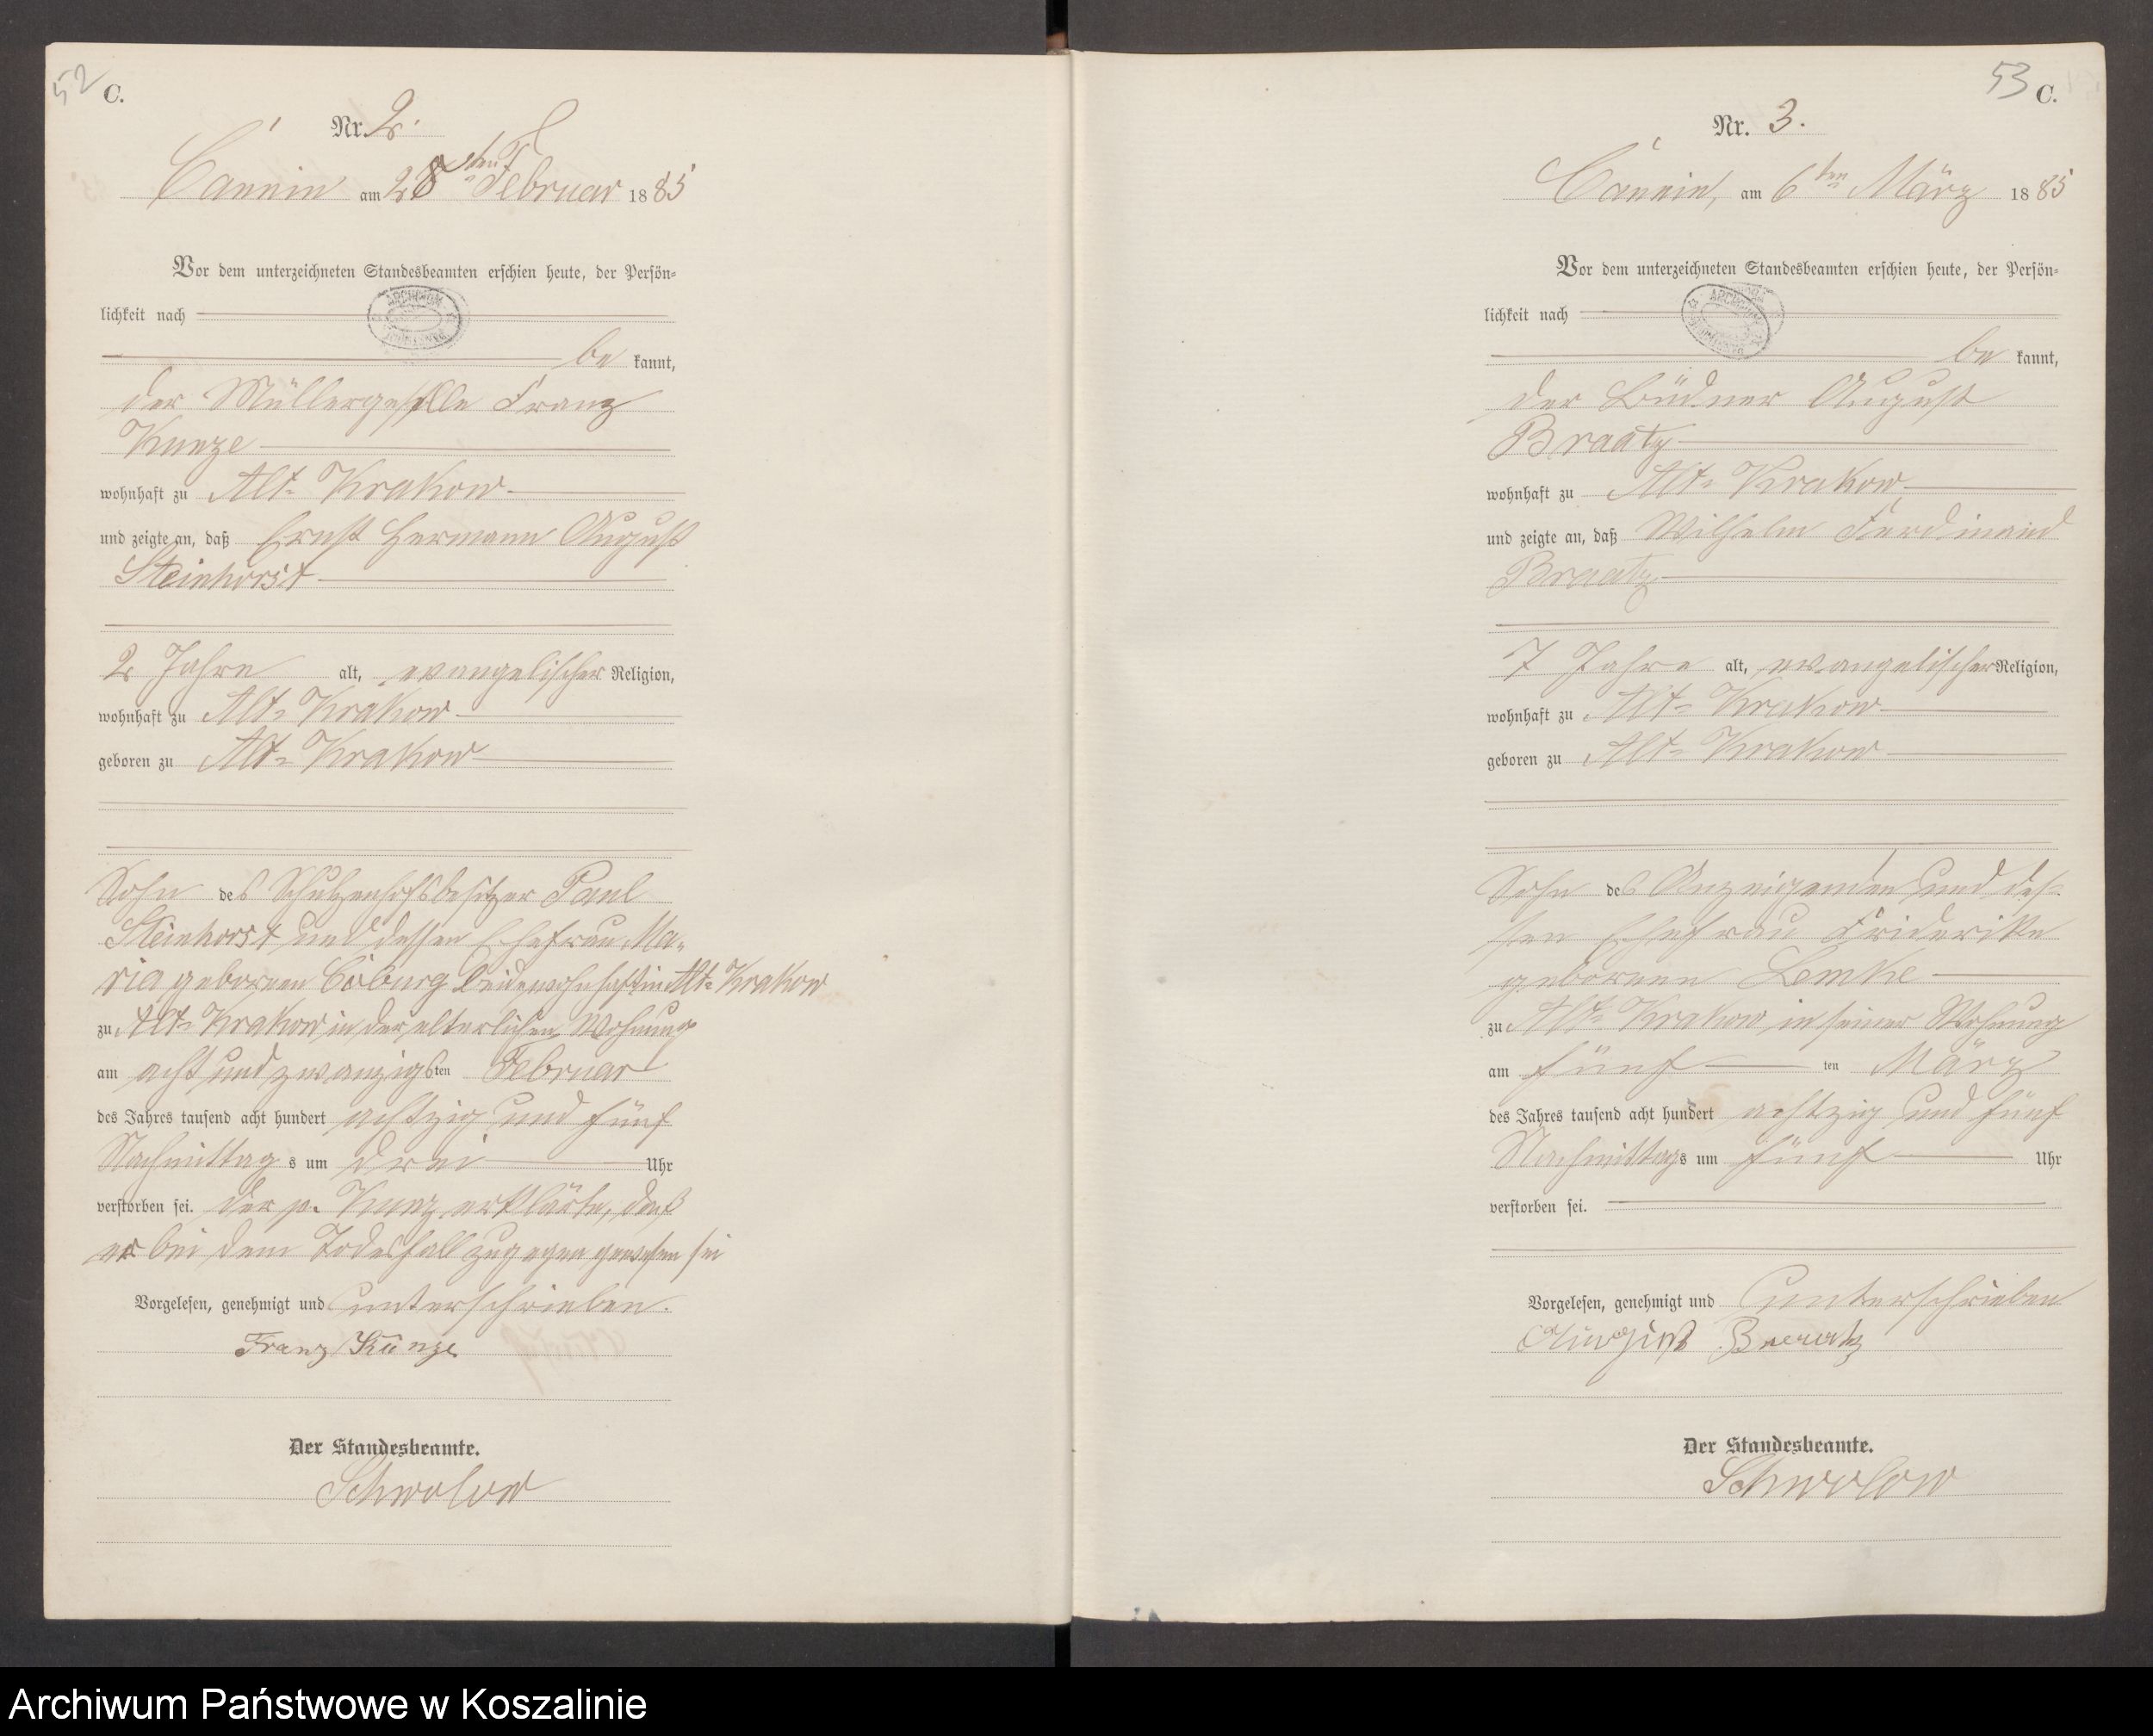 52
C.
Nr. 2.
Cannin am 28ten Februar 1885
Vor dem unterzeichneten Standesbeamten erschien heute, der Persön-
lichkeit nach
be kannt,
der Müllergeselle Franz
Kunze
wohnhaft zu Alt-Krakow
und zeigte an, daß Ernst Hermann August
Steinhorst
2 Jahre alt, evangelischer Religion,
wohnhaft zu Alt-Krakow
geboren zu Alt-Krakow
Sohn des Schulzenhofsbesitzer Paul
Steinhorst und dessen Ehefrau Ma-
ria geborenen Coburg beide wohnhaft in Alt-Krakow
zu Alt-Krakow in der elterlichen Wohnung
am acht und zwanzigsten Februar
des Jahres tausend acht hundert achtzig und fünf
Nachmittags um drei Uhr
verstorben sei. Der p. Kunz erklärte, daß
er bei dem Todesfall zugegen gewesen sei
Vorgelesen, genehmigt und unterschrieben.
Franz Künze
Der Standesbeamte.
Schwolow
53 C.
Nr. 3.
Cannin, am 6ten März 1885
Vor dem unterzeichneten Standesbeamten erschien heute, der Persön-
lichkeit nach
be kannt,
der Büdner August
Braatz
wohnhaft zu Alt-Krakow
und zeigte an, daß Wilhelm Ferdinand
Braatz
7 Jahre alt, evangelischer Religion,
wohnhaft zu Alt-Krakow
geboren zu Alt-Krakow
Sohn des Anzeigenden und des-
sen Ehefrau Friderike
geborenen Lemke
zu Alt-Krakow in seiner Wohnung
am fünf ten März
des Jahres tausend acht hundert achtzig und fünf
Nachmittags um fünf Uhr
verstorben sei.
Vorgelesen, genehmigt und unterschrieben
August Braatz
Der Standesbeamte.
Schwolow
Archiwum Państwowe w Koszalinie